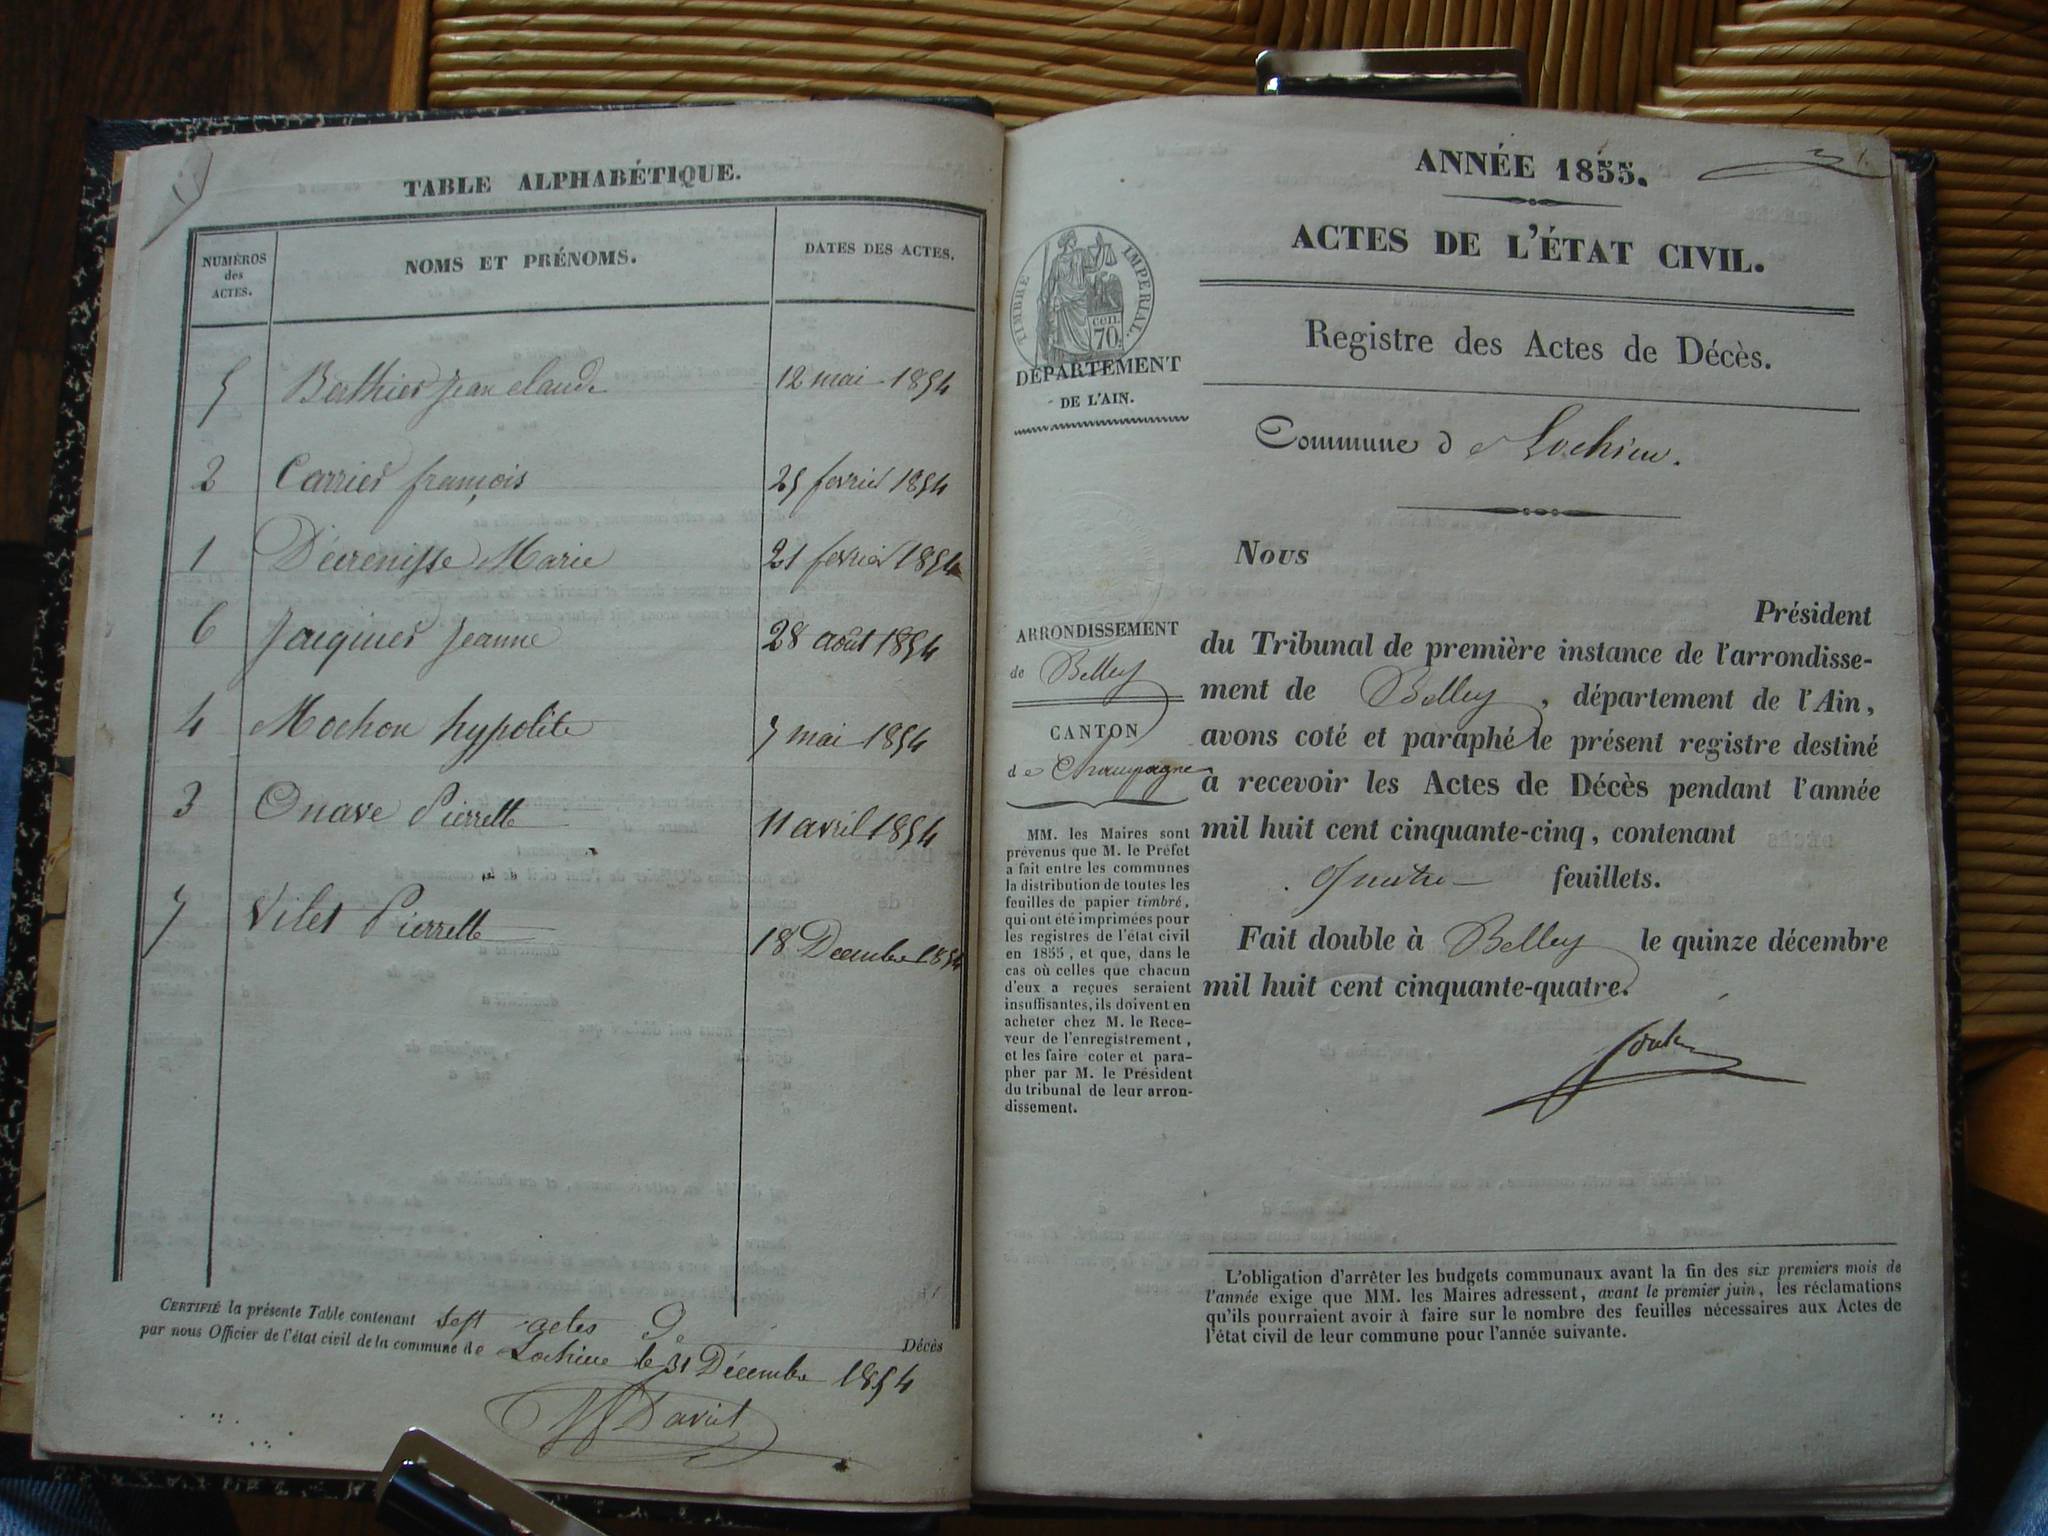 TABLE ALPHABÉTIQUE.
NUMÉROS des ACTES.
NOMS ET PRÉNOMS.
DATES DES ACTES.
5 Berthier Jean Claude 12 mai 1854
2 Carrier françois 25 fevrier 1854
1 Décrenisse Marie 21 fevrier 1854
6 Jacquier Jeanne 28 août 1854
4 Mochon hypolite 7 mai 1854
3 Onave Pierrette 11 avril 1854
7 Vilet Pierrette 18 Decembre 1854
CERTIFIÉ la présente Table contenant sept actes de Décès
par nous Officier de l'état civil de la commune de Lochieu le 31 Décembre 1854
Davit
ANNÉE 1855.
1.
ACTES DE L'ÉTAT CIVIL.
TIMBRE IMPERIAL.
70 cen.
DÉPARTEMENT
DE L'AIN.
Registre des Actes de Décès.
Commune de Lochieu.
Nous
Président
du Tribunal de première instance de l'arrondisse-
ment de Belley, département de l'Ain,
avons coté et paraphé le présent registre destiné
à recevoir les Actes de Décès pendant l'année
mil huit cent cinquante-cinq, contenant
quatre feuillets.
Fait double à Belley le quinze décembre
mil huit cent cinquante-quatre.
ARRONDISSEMENT
de Belley
CANTON
de Champagne
MM. les Maires sont
prévenus que M. le Préfet
a fait entre les communes
la distribution de toutes les
feuilles de papier timbré,
qui ont été imprimées pour
les registres de l'état civil
en 1855, et que, dans le
cas où celles que chacun
d'eux a reçues seraient
insuffisantes, ils doivent en
acheter chez M. le Rece-
veur de l'enregistrement,
et les faire coter et para-
pher par M. le Président
du tribunal de leur arron-
dissement.
L'obligation d'arrêter les budgets communaux avant la fin des six premiers mois de
l'année exige que MM. les Maires adressent, avant le premier juin, les réclamations
qu'ils pourraient avoir à faire sur le nombre des feuilles nécessaires aux Actes de
l'état civil de leur commune pour l'année suivante.